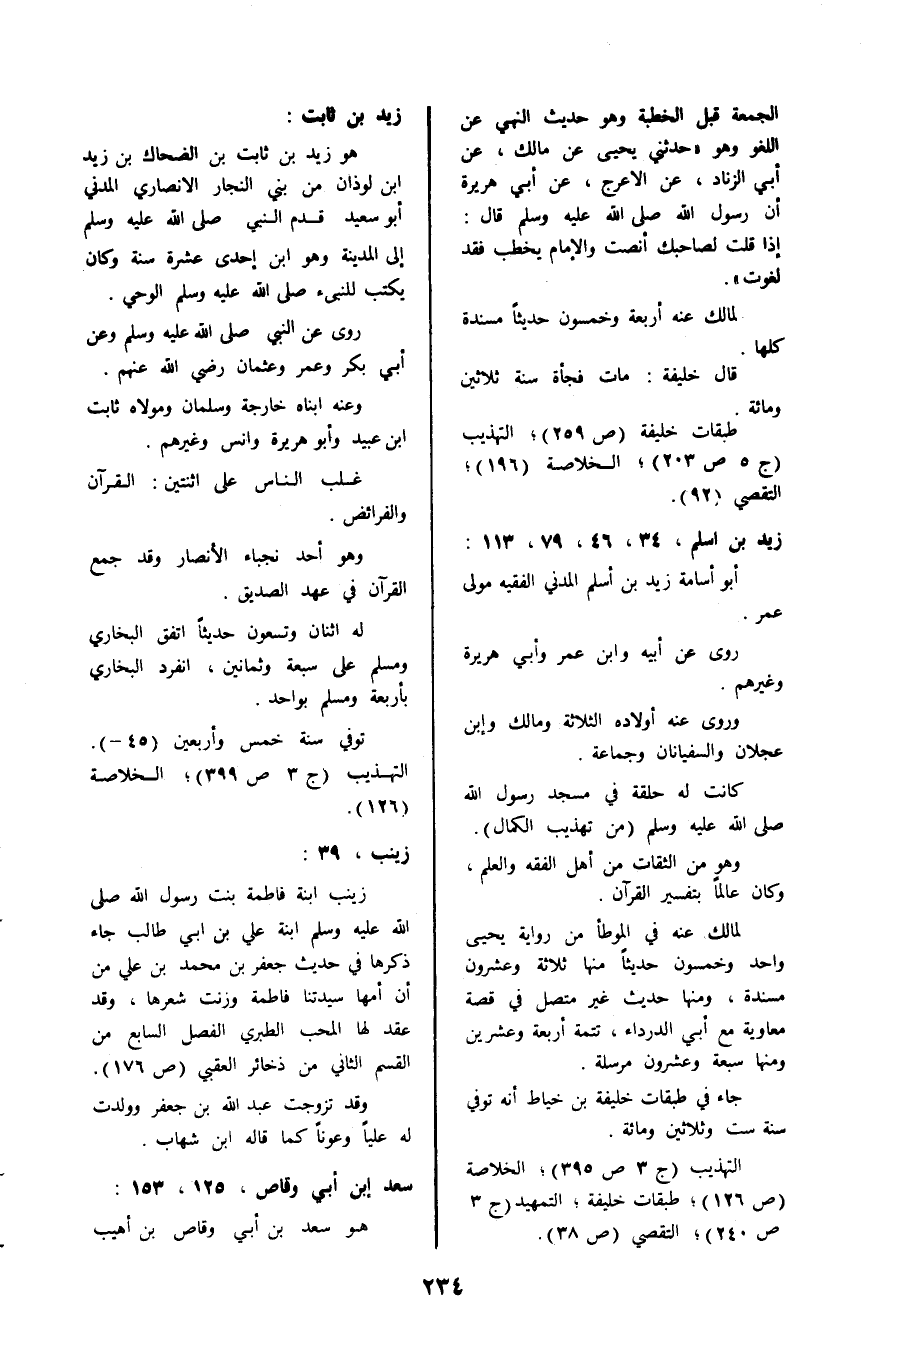 الجمعة قبل الخطبة وهو حديث النهي عن
اللغو وهو «حدثني يحيى عن مالك ، عن
أبي الزناد ، عن الاعرج ، عن أبي هريرة
أن رسول الله صلى الله عليه وسلم قال :
إذا قلت لصاحبك أنصت والإمام يخطب فقد
لغوت» .
لمالك عنه أربعة وخمسون حديثاً مسندة
كلها .
قال خليفة : مات فجأة سنة ثلاثين
ومائة .
طبقات خليفة (ص ٢٥٩)؛ التهذيب
(ج ٥ ص ٢٠٣)؛ الخلاصة (١٩٦)؛
التقصي (٩٢).
زيد بن اسلم ، ٣٤ ، ٤٦ ، ٧٩ ، ١١٣ :
أبو أسامة زيد بن أسلم المدني الفقيه مولى
عمر .
روى عن أبيه وابن عمر وأبي هريرة
وغيرهم .
وروى عنه أولاده الثلاثة ومالك وإبن
عجلان والسفيانان وجماعة .
كانت له حلقة في مسجد رسول الله
صلى الله عليه وسلم (من تهذيب الكمال).
وهو من الثقات من أهل الفقه والعلم ،
وكان عالماً بتفسير القرآن .
لمالك عنه في الموطأ من رواية يحيى
واحد وخمسون حديثاً منها ثلاثة وعشرون
مسندة ، ومنها حديث غير متصل في قصة
معاوية مع أبي الدرداء ، تتمة أربعة وعشرين
ومنها سبعة وعشرون مرسلة .
جاء في طبقات خليفة بن خياط أنه توفي
سنة ست وثلاثين ومائة .
التهذيب (ج ٣ ص ٣٩٥)؛ الخلاصة
(ص ١٢٦)؛ طبقات خليفة ؛ التمهيد (ج ٣
ص ٢٤٠)؛ التقصي (ص ٣٨).
زيد بن ثابت :
هو زيد بن ثابت بن الضحاك بن زيد
ابن لوذان من بني النجار الانصاري المدني
أبو سعيد قدم النبي صلى الله عليه وسلم
إلى المدينة وهو ابن إحدى عشرة سنة وكان
يكتب للنبيء صلى الله عليه وسلم الوحي .
روى عن النبي صلى الله عليه وسلم وعن
أبي بكر وعمر وعثمان رضي الله عنهم .
وعنه ابناه خارجة وسلمان ومولاه ثابت
ابن عبيد وأبو هريرة وانس وغيرهم .
غلب الناس على اثنتين : القرآن
والفرائض .
وهو أحد نجباء الأنصار وقد جمع
القرآن في عهد الصديق .
له اثنان وتسعون حديثاً اتفق البخاري
ومسلم على سبعة وثمانين ، انفرد البخاري
بأربعة ومسلم بواحد .
توفي سنة خمس وأربعين (٤٥ -).
التهذيب (ج ٣ ص ٣٩٩)؛ الخلاصة
(١٢٦).
زينب ، ٣٩ :
زينب ابنة فاطمة بنت رسول الله صلى
الله عليه وسلم ابنة علي بن ابي طالب جاء
ذكرها في حديث جعفر بن محمد بن علي من
أن أمها سيدتنا فاطمة وزنت شعرها ، وقد
عقد لها المحب الطبري الفصل السابع من
القسم الثاني من ذخائر العقبي (ص ١٧٦).
وقد تزوجت عبد الله بن جعفر وولدت
له علياً وعوناً كما قاله ابن شهاب .
سعد إبن أبي وقاص ، ١٢٥ ، ١٥٣ :
هو سعد بن أبي وقاص بن أهيب
٢٣٤